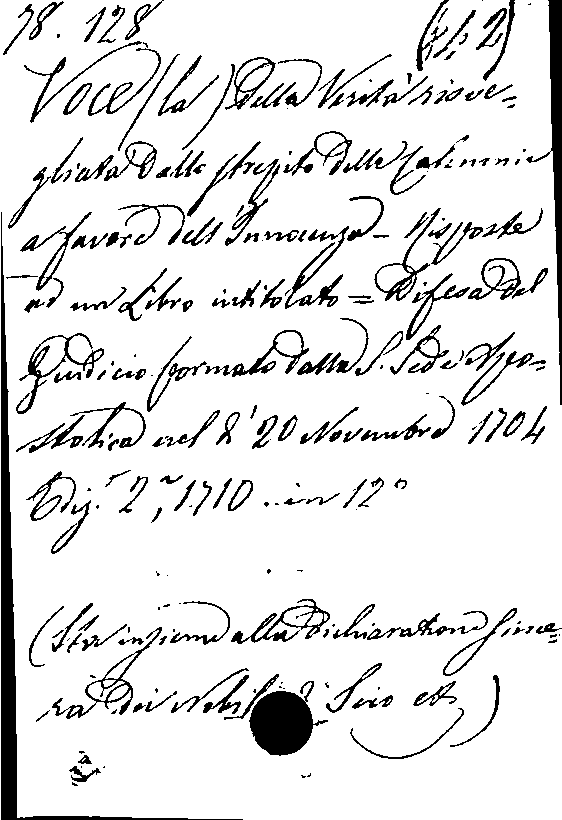 78. 128
Voce (la) della Verità risve=
gliata dallo strepito delle Calunnie
a favore dell'Innocenza - Risposta
ad un Libro intitolato = Difesa del
Giudicio formato dalla S. Sede Apo=
stolica nel dì 20 Novembre 1704
Ediz. 2ª, 1710. in 12º
(Sta insieme alla Dichiaratione since=
ra dei Nobili di Scio &)